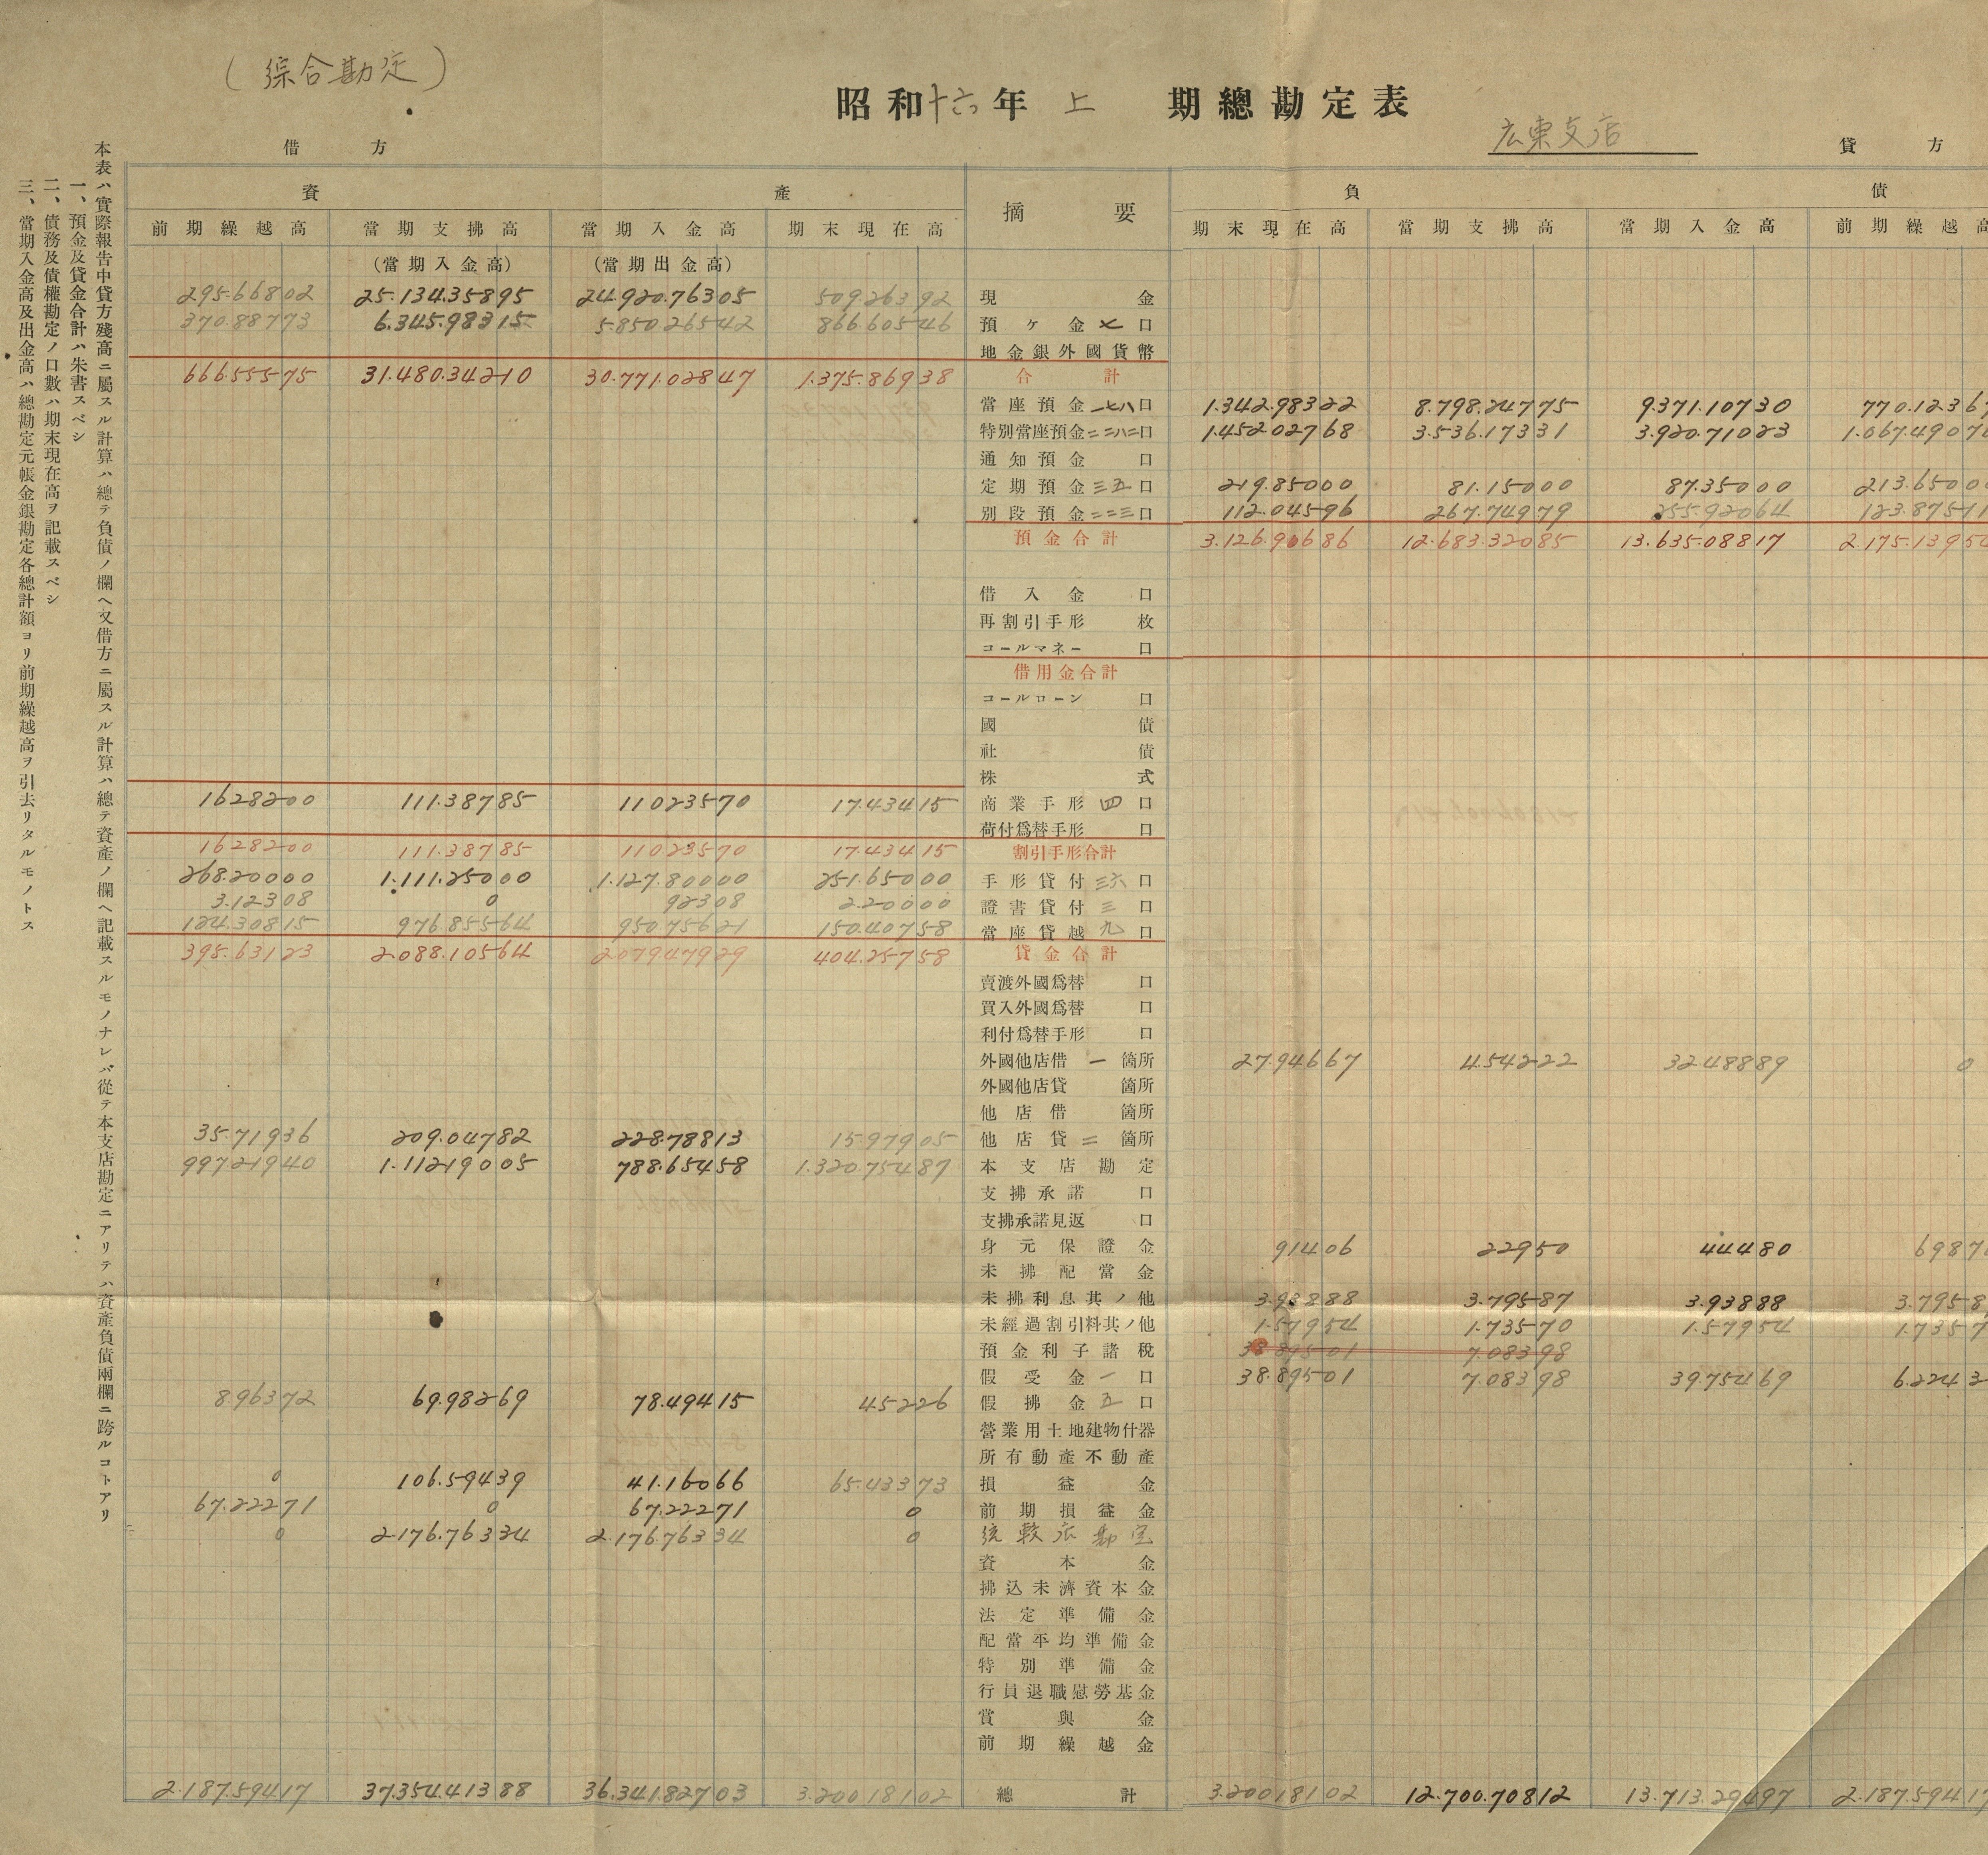 （綜合勘定）
昭和十六年 上 期總勘定表
広東支店
借方
貸方
本表ハ實際報告中貸方殘高ニ屬スル計算ハ總テ負債ノ欄ヘ又借方ニ屬スル計算ハ總テ資產ノ欄ヘ記載スルモノナレバ從テ本支店勘定ニアリテハ資產負債兩欄ニ跨ルコトアリ
一、預金及貸金合計ハ朱書スベシ
二、債務及債權勘定ノ口數ハ期末現在高ヲ記載スベシ
三、當期入金高及出金高ハ總勘定元帳金銀勘定各總計額ヨリ前期繰越高ヲ引去リタルモノトス
資產 摘要 負債
前期繰越高 當期支拂高 當期入金高 期末現在高 期末現在高 當期支拂高 當期入金高 前期繰越高
（當期入金高） （當期出金高）
295.66802 25.134.35895 24.920.76305 509.26392 現金
370.88773 6.345.98315 5.850.26542 866.60546 預ケ金 七 口
地金銀外國貨幣
666.55575 31.480.34210 30.771.02847 1.375.86938 合計
當座預金 一七八 口 1.342.98322 8.798.24775 9.371.10730 770.1236
特別當座預金 二二八二 口 1.452.02768 3.536.17331 3.920.71023 1.067.4907
通知預金 口
定期預金 三五 口 219.85000 81.15000 87.35000 213.6500
別段預金 二二三 口 112.04596 267.74979 255.92064 123.8751
預金合計 3.126.90686 12.683.32085 13.635.08817 2.175.1395
借入金 口
再割引手形 枚
コールマネー 口
借用金合計
コールローン 口
國債
社債
株式
1628200 111.38785 11023570 17.43415 商業手形 四 口
荷付爲替手形 口
1628200 111.38785 11023570 17.43415 割引手形合計
268.20000 1.111.25000 1.127.80000 251.65000 手形貸付 三六 口
3.12308 0 92308 2.20000 證書貸付 三 口
124.30815 976.85564 950.75621 150.40758 當座貸越 九 口
395.63123 2.088.10564 207947929 404.25758 貸金合計
賣渡外國爲替 口
買入外國爲替 口
利付爲替手形 口
外國他店借 一 箇所 27.94667 4.54222 32.48889 0
外國他店貸 箇所
他店借 箇所
35.71936 209.04782 228.78813 15.97905 他店貸 二 箇所
997.21940 1.112.19005 788.65458 1.320.75487 本支店勘定
支拂承諾 口
支拂承諾見返 口
身元保證金 91406 22950 44480 6987
未拂配當金
未拂利息其ノ他 3.93888 3.79587 3.93888 3.7958
未經過割引料其ノ他 1.57954 1.73570 1.57954 1.7357
預金利子諸稅 38.89501 7.08398
假受金 一 口 38.89501 7.08398 39.75469 6.2243
8.96372 69.98269 78.49415 45226 假拂金 五 口
營業用土地建物什器
所有動產不動產
0 106.59439 41.16066 65.43373 損益金
67.22271 0 67.22271 0 前期損益金
0 2.176.76334 2.176.76334 0
資本金
拂込未濟資本金
法定準備金
配當平均準備金
特別準備金
行員退職慰勞基金
賞與金
前期繰越金
2.187.59417 37.354.41388 36.341.82703 3.200.18102 總計 3.200.18102 12.700.70812 13.713.29497 2.187.59417